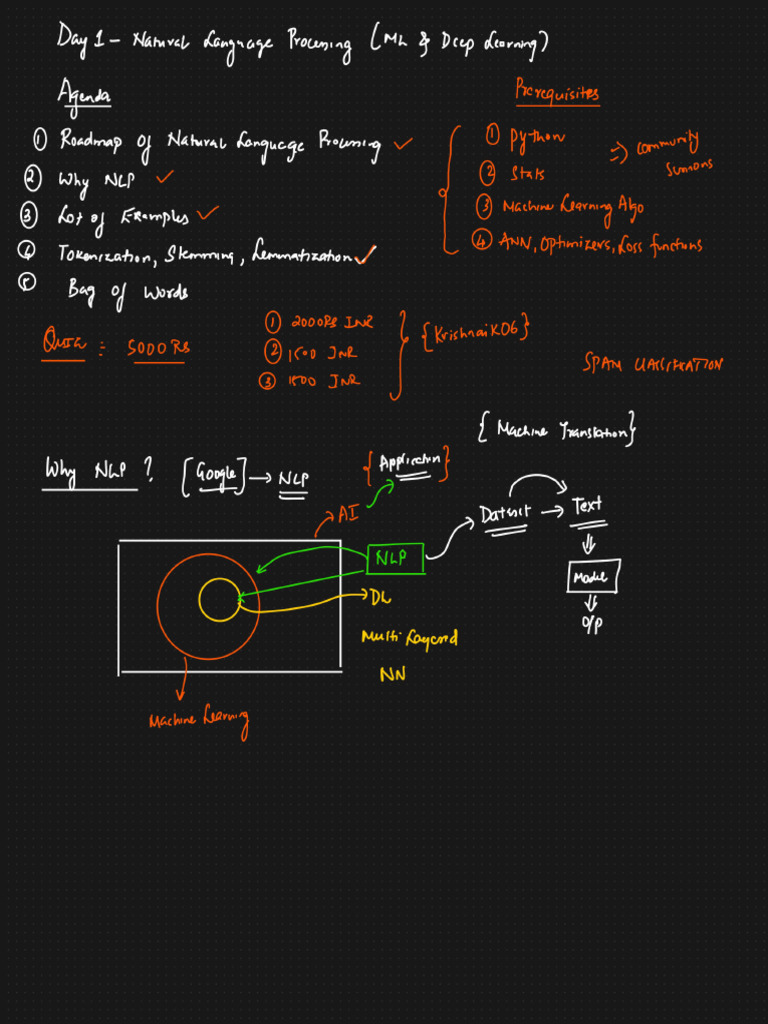 Day 1 – Natural Language Processing (ML & Deep Learning)
Agenda
① Roadmap of Natural Language Processing ✓
② Why NLP ✓
③ Lot of Examples ✓
④ Tokenization, Stemming, Lemmatization ✓
⑤ Bag of Words
Prerequisites
① Python
② Stats
③ Machine Learning Algo
④ ANN, Optimizers, Loss functions
⇒ Community
Quiz : 5000 Rs
① 2000Rs INR
② 1500 INR
③ 1500 INR
{KrishnaiK06}
SPAM CLASSIFICATION
{Machine Translation}
Why NLP? [Google] → NLP
{Application}
AI
NLP
DL
Multi Layered
NN
Machine Learning
Dataset → Text
Model
O/P